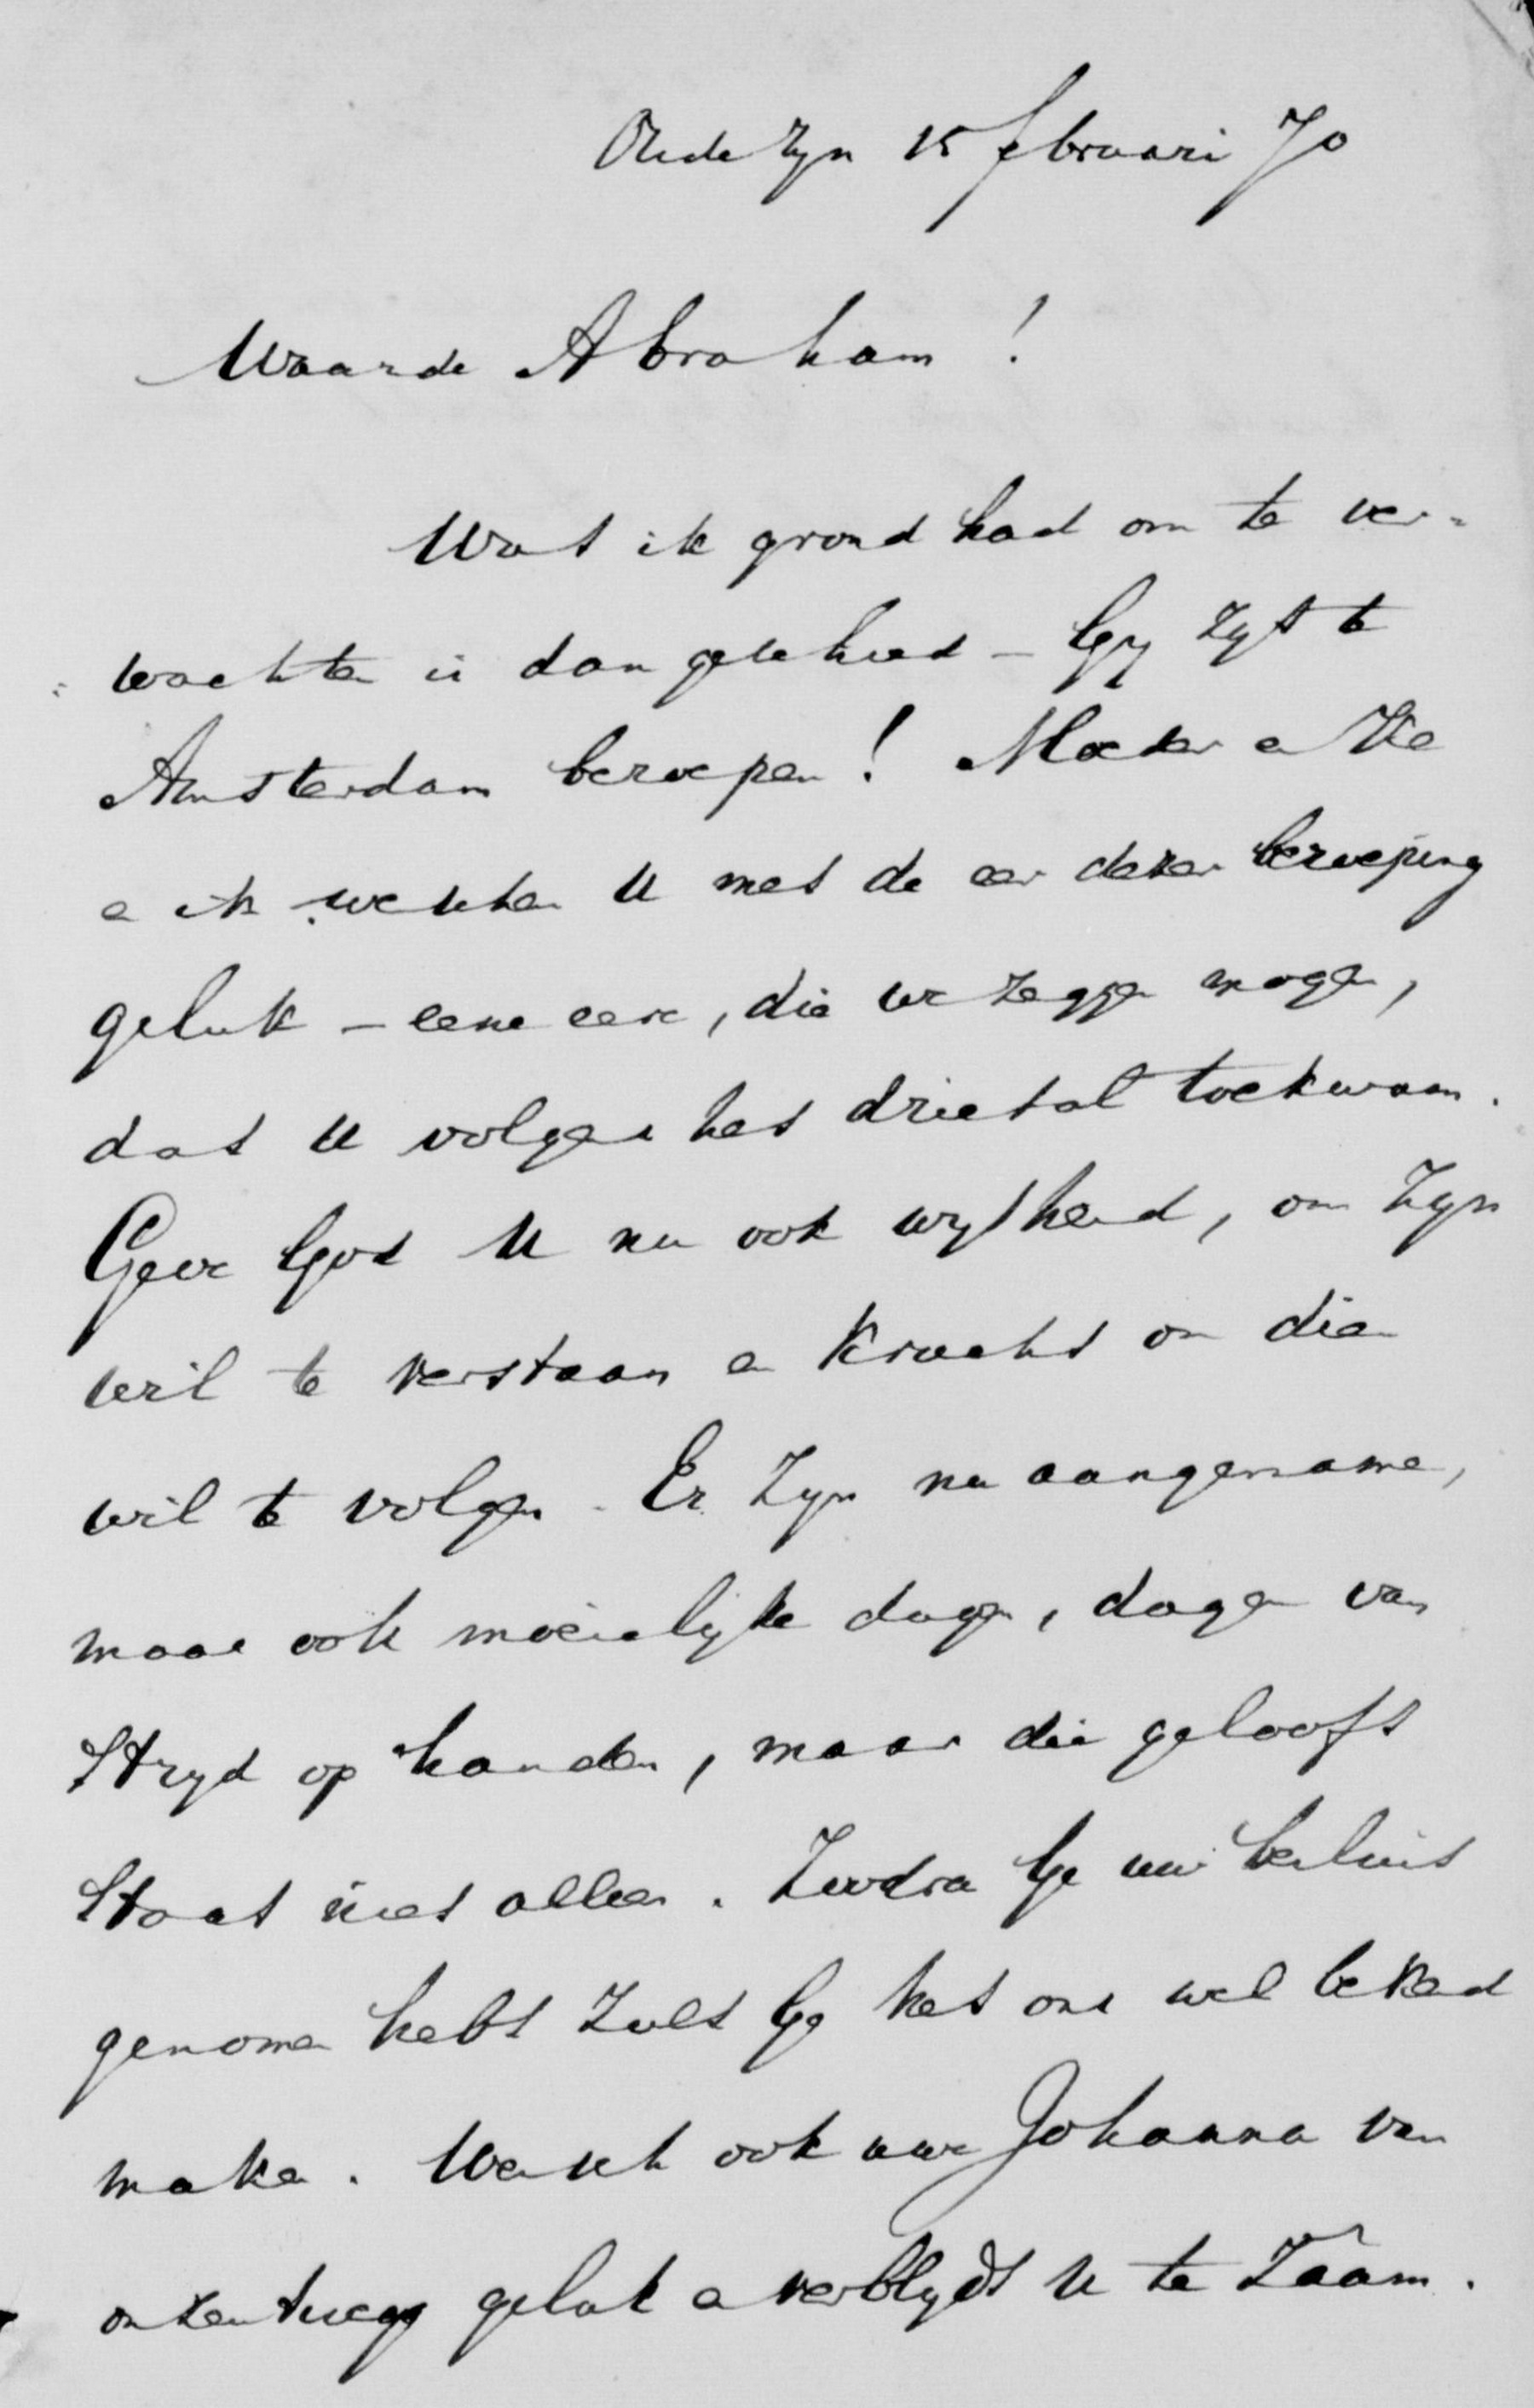 Oude Ryn 15 februari 70
Waarde Abraham !
Wat ik grond had om te ver-
wachten is dan geschied - Gy zyt te
Amsterdam beroepen ! Moeder en
en ik wenschen U met de eer dezer beroeping
geluk - eene eere, die we zeggen mogen,
dat U volgens het drietal toekwam.
Geve God U nu ook wysheid, om Zyn
wil te verstaan en kracht om dien
wil te volgen. Er zyn nu aangename,
maar ook moeielyke dagen, dagen van
stryd op handen, maar die gelooft
staat niet alleen. Zoodra Ge uw besluit
genomen hebt zult Ge het ons wel bekend
maken. Wensch ook uwe Johanna van
onzentwege geluk en verblydt U te zaâm.